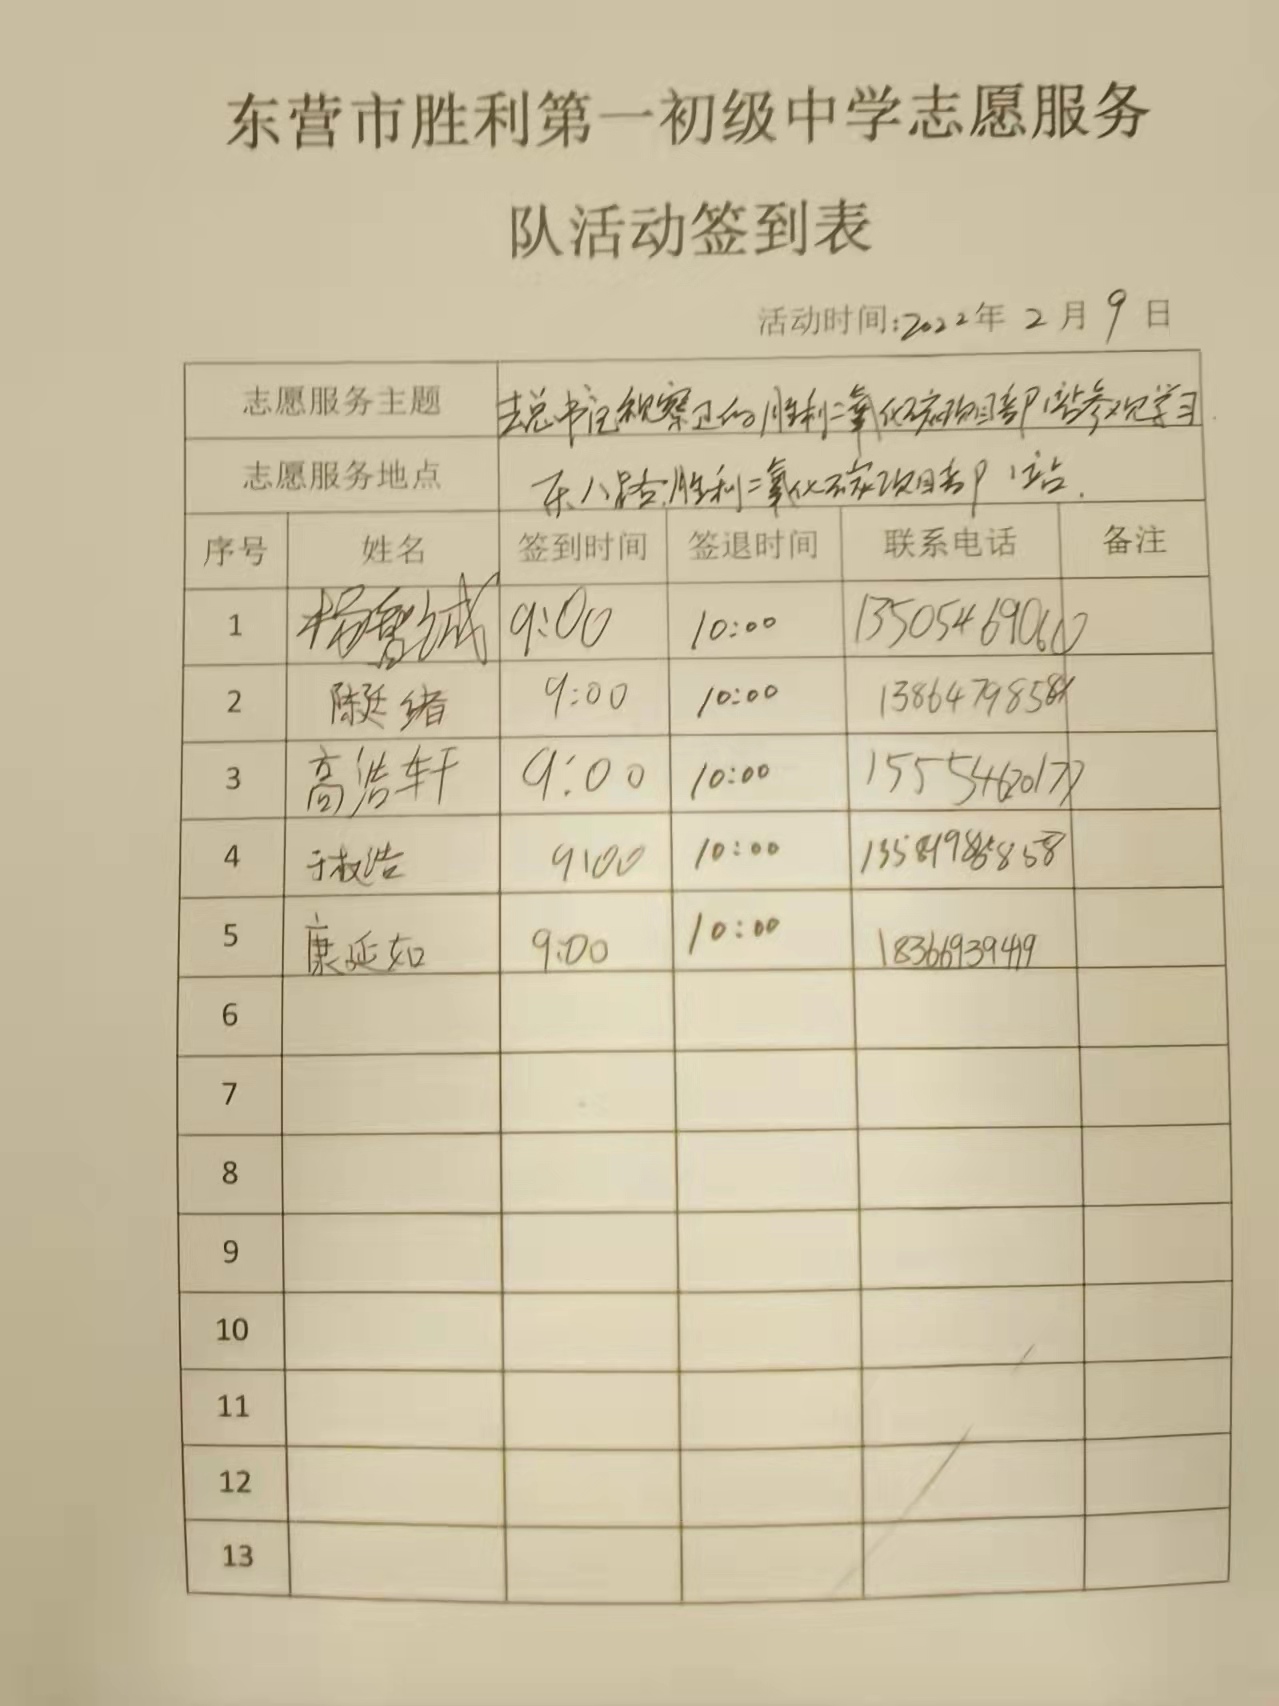 东营市胜利第一初级中学志愿服务
队活动签到表
活动时间:2022年 2 月 9 日
志愿服务主题 去总书记视察过的胜利二氧化碳项目部门站参观学习.
志愿服务地点 东八路胜利二氧化碳项目部门站.
序号 姓名 签到时间 签退时间 联系电话 备注
1 杨智诚 9:00 10:00 13505469060
2 陈延绪 9:00 10:00 1386479858
3 高浩轩 9:00 10:00 15554620177
4 于权浩 9:00 10:00
5 康延如 9:00 10:00 18366939419
6
7
8
9
10
11
12
13